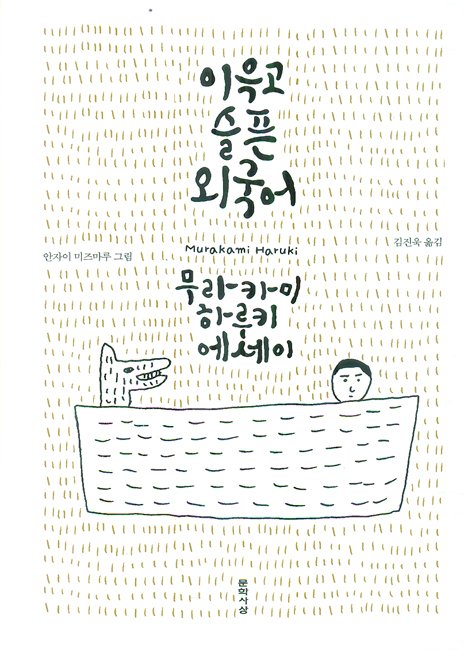 이윽고
슬픈
외국어
Murakami Haruki
김진욱 옮김
안자이 미즈마루 그림
무라카미
하루키
에세이
문학사상